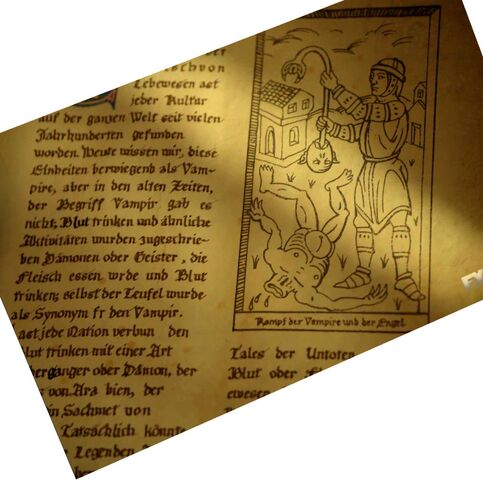 der
schvon
Lebewesen ast
jeder Kultur
auf der ganzen Welt seit vielen
Jahrhunderten gefunden
worden. Heute wissen wir, diese
Einheiten berwiegend als Vam-
pire, aber in den alten Zeiten,
der Begriff Vampir gab es
nicht; Blut trinken und ähnliche
Aktivitäten wurden zugeschrie-
ben Dämonen oder Geister, die
Fleisch essen wrde und Blut
trinken; selbst der Teufel wurde
als Synonym fr den Vampir.
ast jede Nation verbun den
lut trinken mit einer Art
ergänger oder Dämon, der
von Ara bien, der
in Sachmet von
Tatsächlich könnte
Legenden
Kampf der Vampire und der Engel
Tales der Untoten
Blut oder
ewesen
FX